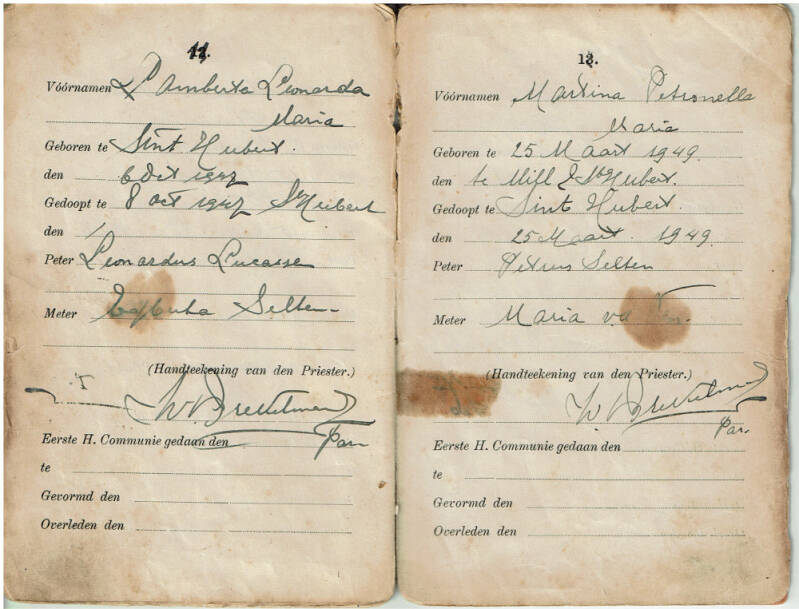 11.
Vóórnamen Lamberta Leonarda
Maria
Geboren te Sint Hubert.
den 6 Oct 1947
Gedoopt te 8 oct 1947 St Hubert
den
Peter Leonardus Lucasse
Meter Selten
(Handteekening van den Priester.)
W.
Par
Eerste H. Communie gedaan den
te
Gevormd den
Overleden den
13.
Vóórnamen Martina Petronella
Maria
Geboren te 25 Maart 1949.
den te Mill & St Hubert.
Gedoopt te Sint Hubert.
den 25 Maart 1949.
Peter Petrus Selten
Meter Maria v.d. Ven.
(Handteekening van den Priester.)
W.
Par.
Eerste H. Communie gedaan den
te
Gevormd den
Overleden den